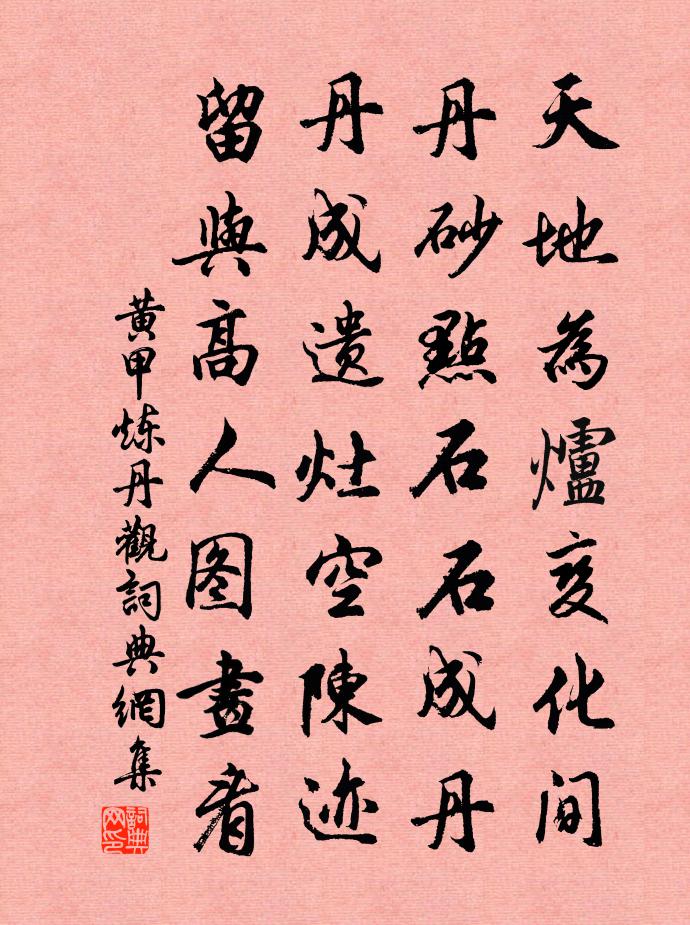 天地為爐变化间
丹砂點石石成丹
丹成遗灶空陳迹
留與高人图畫看
黄甲炼丹觀詞典網集
詞典网印